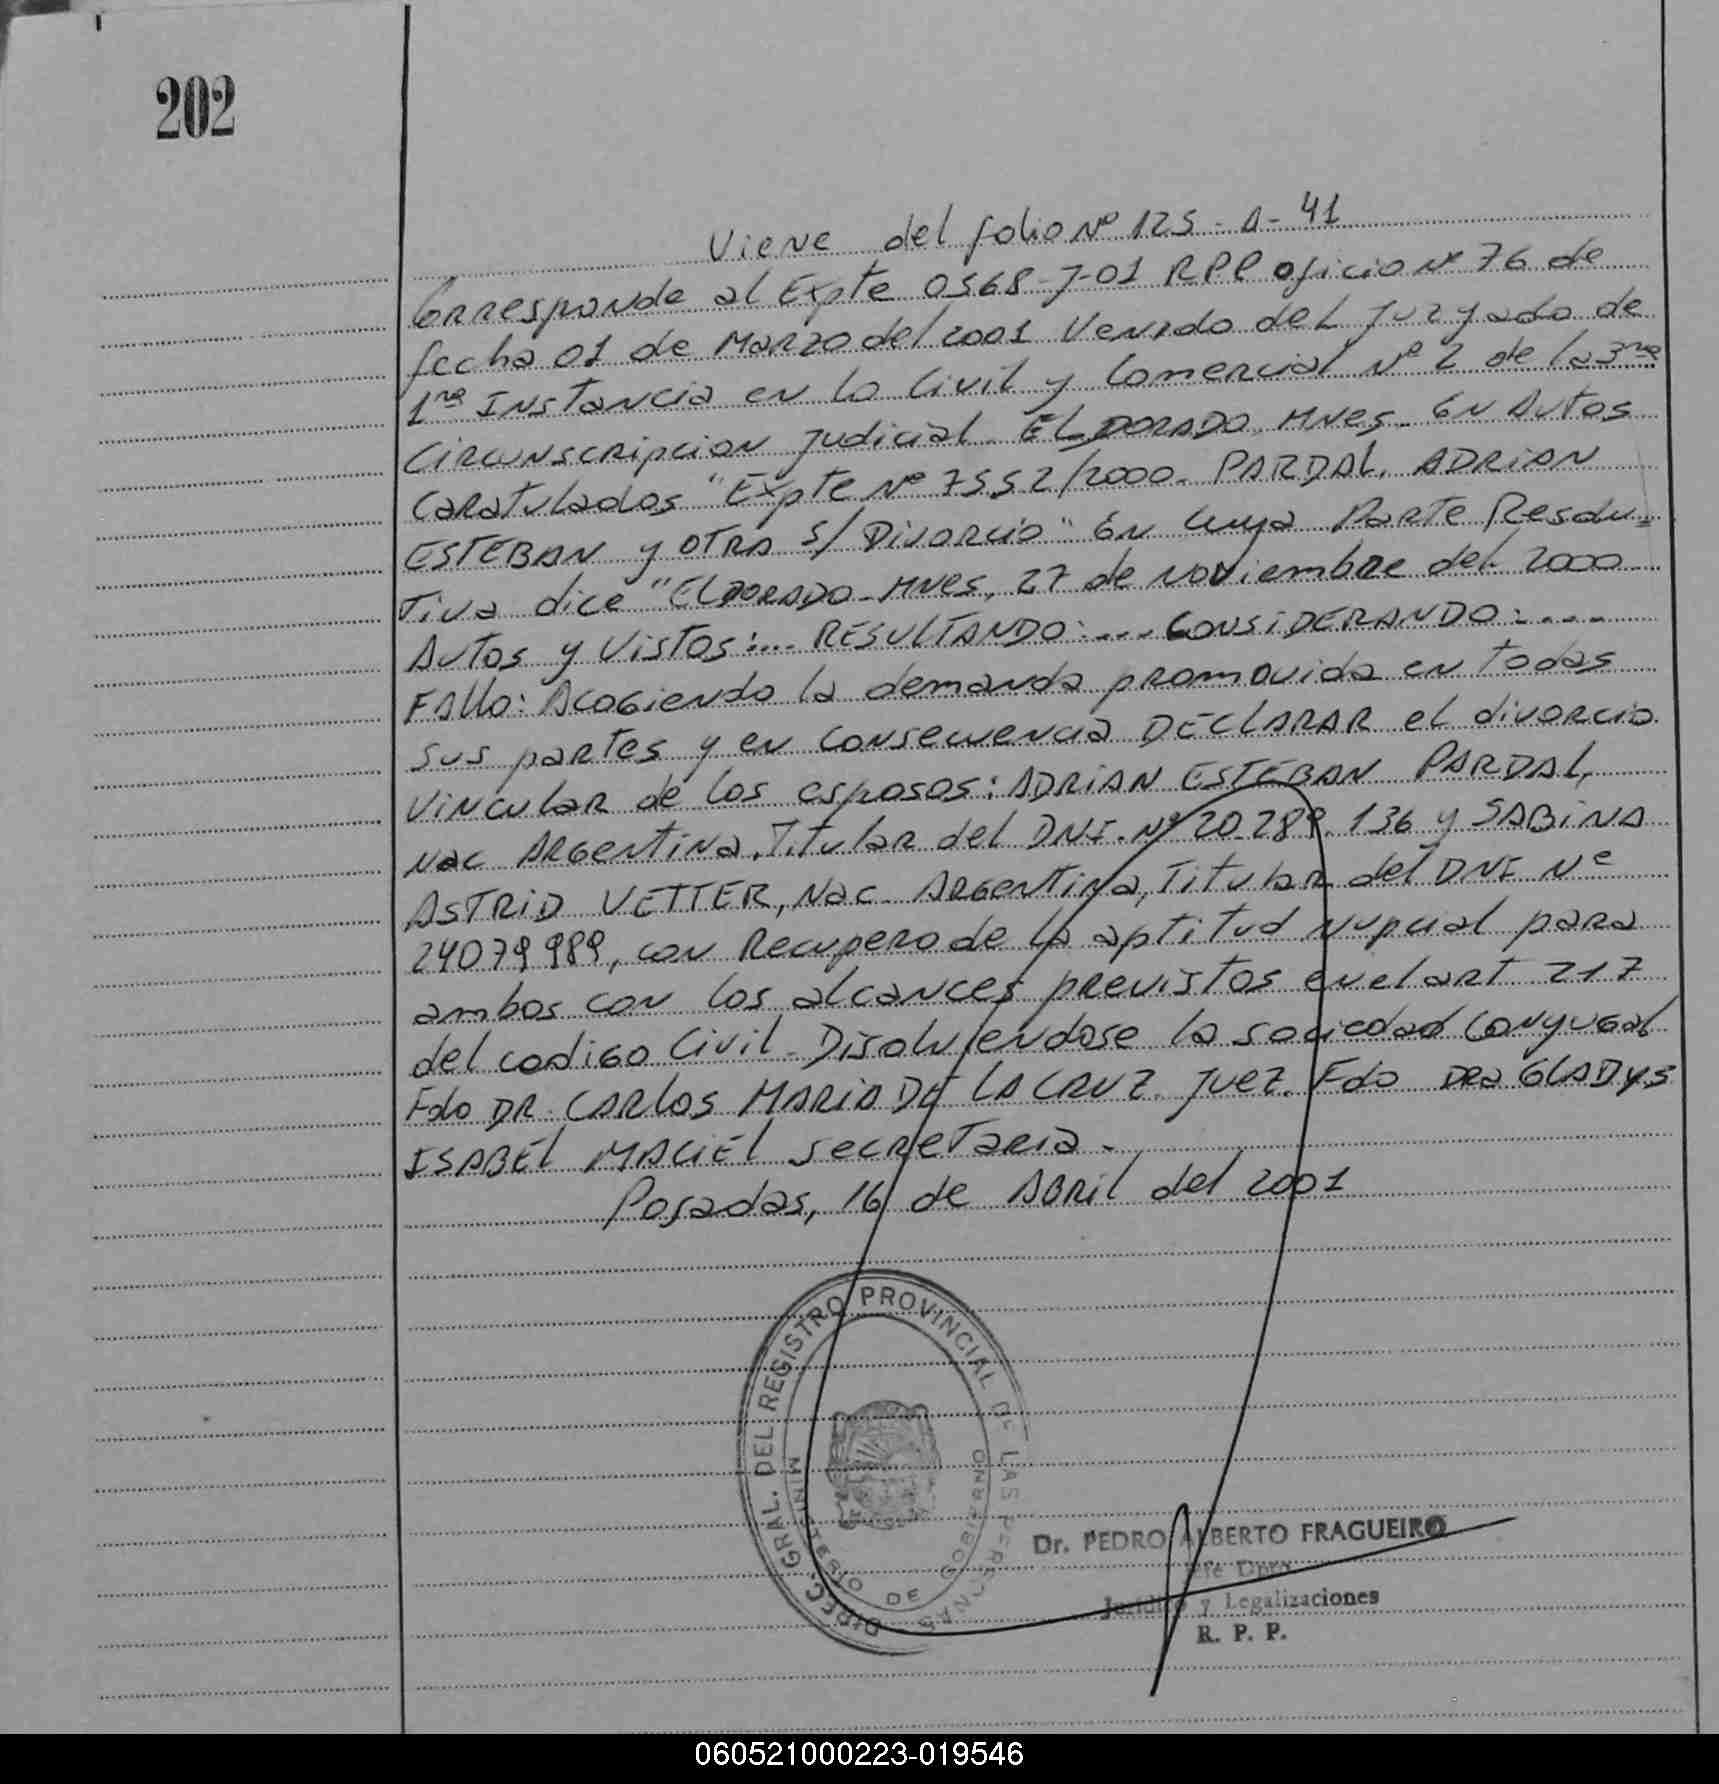 202
Viene del folio Nº 125 - A - 41
Corresponde al Expte 0568-J-01 RPP oficio Nº 76 de
fecha 01 de Marzo del 2001 Venido del Juzgado de
1ra Instancia en lo Civil y Comercial Nº 2 de la 3ra
Circunscripcion Judicial. ELDORADO, Mnes. En Autos
Caratulados "Expte Nº 7552/2000 - PARDAL, ADRIAN
ESTEBAN y OTRA S/ Divorcio" En Cuya Parte Resolu-
Tiva dice "ELDORADO - Mnes, 27 de Noviembre del 2000
Autos y Vistos:... RESULTANDO:... CONSIDERANDO:....
FAllo: Acogiendo la demanda promovida en todas
sus partes y en consecuencia DECLARAR el divorcio
vincular de los esposos: ADRIAN ESTEBAN PARDAL,
Nac Argentina, Titular del DNI. Nº 20.289.136 y SABINA
ASTRID VETTER, Nac. Argentina, Titular del DNI Nº
24079989, con Recupero de la aptitud nupcial para
ambos con los alcances previstos en el art 217
del codigo Civil. Disolviendose la sociedad Conyugal
Fdo DR. CARLOS MARIA DE LA CRUZ. Juez. Fdo DRa GLADYS
ISABEL MACIEL secretaria.
Posadas, 16 de Abril del 2001
DIREC. GRAL. DEL REGISTRO PROVINCIAL DE LAS PERSONAS
MINISTERIO DE GOBIERNO
Dr. PEDRO ALBERTO FRAGUEIRO
Jefe Dpto.
Jurídico y Legalizaciones
R. P. P.
060521000223-019546